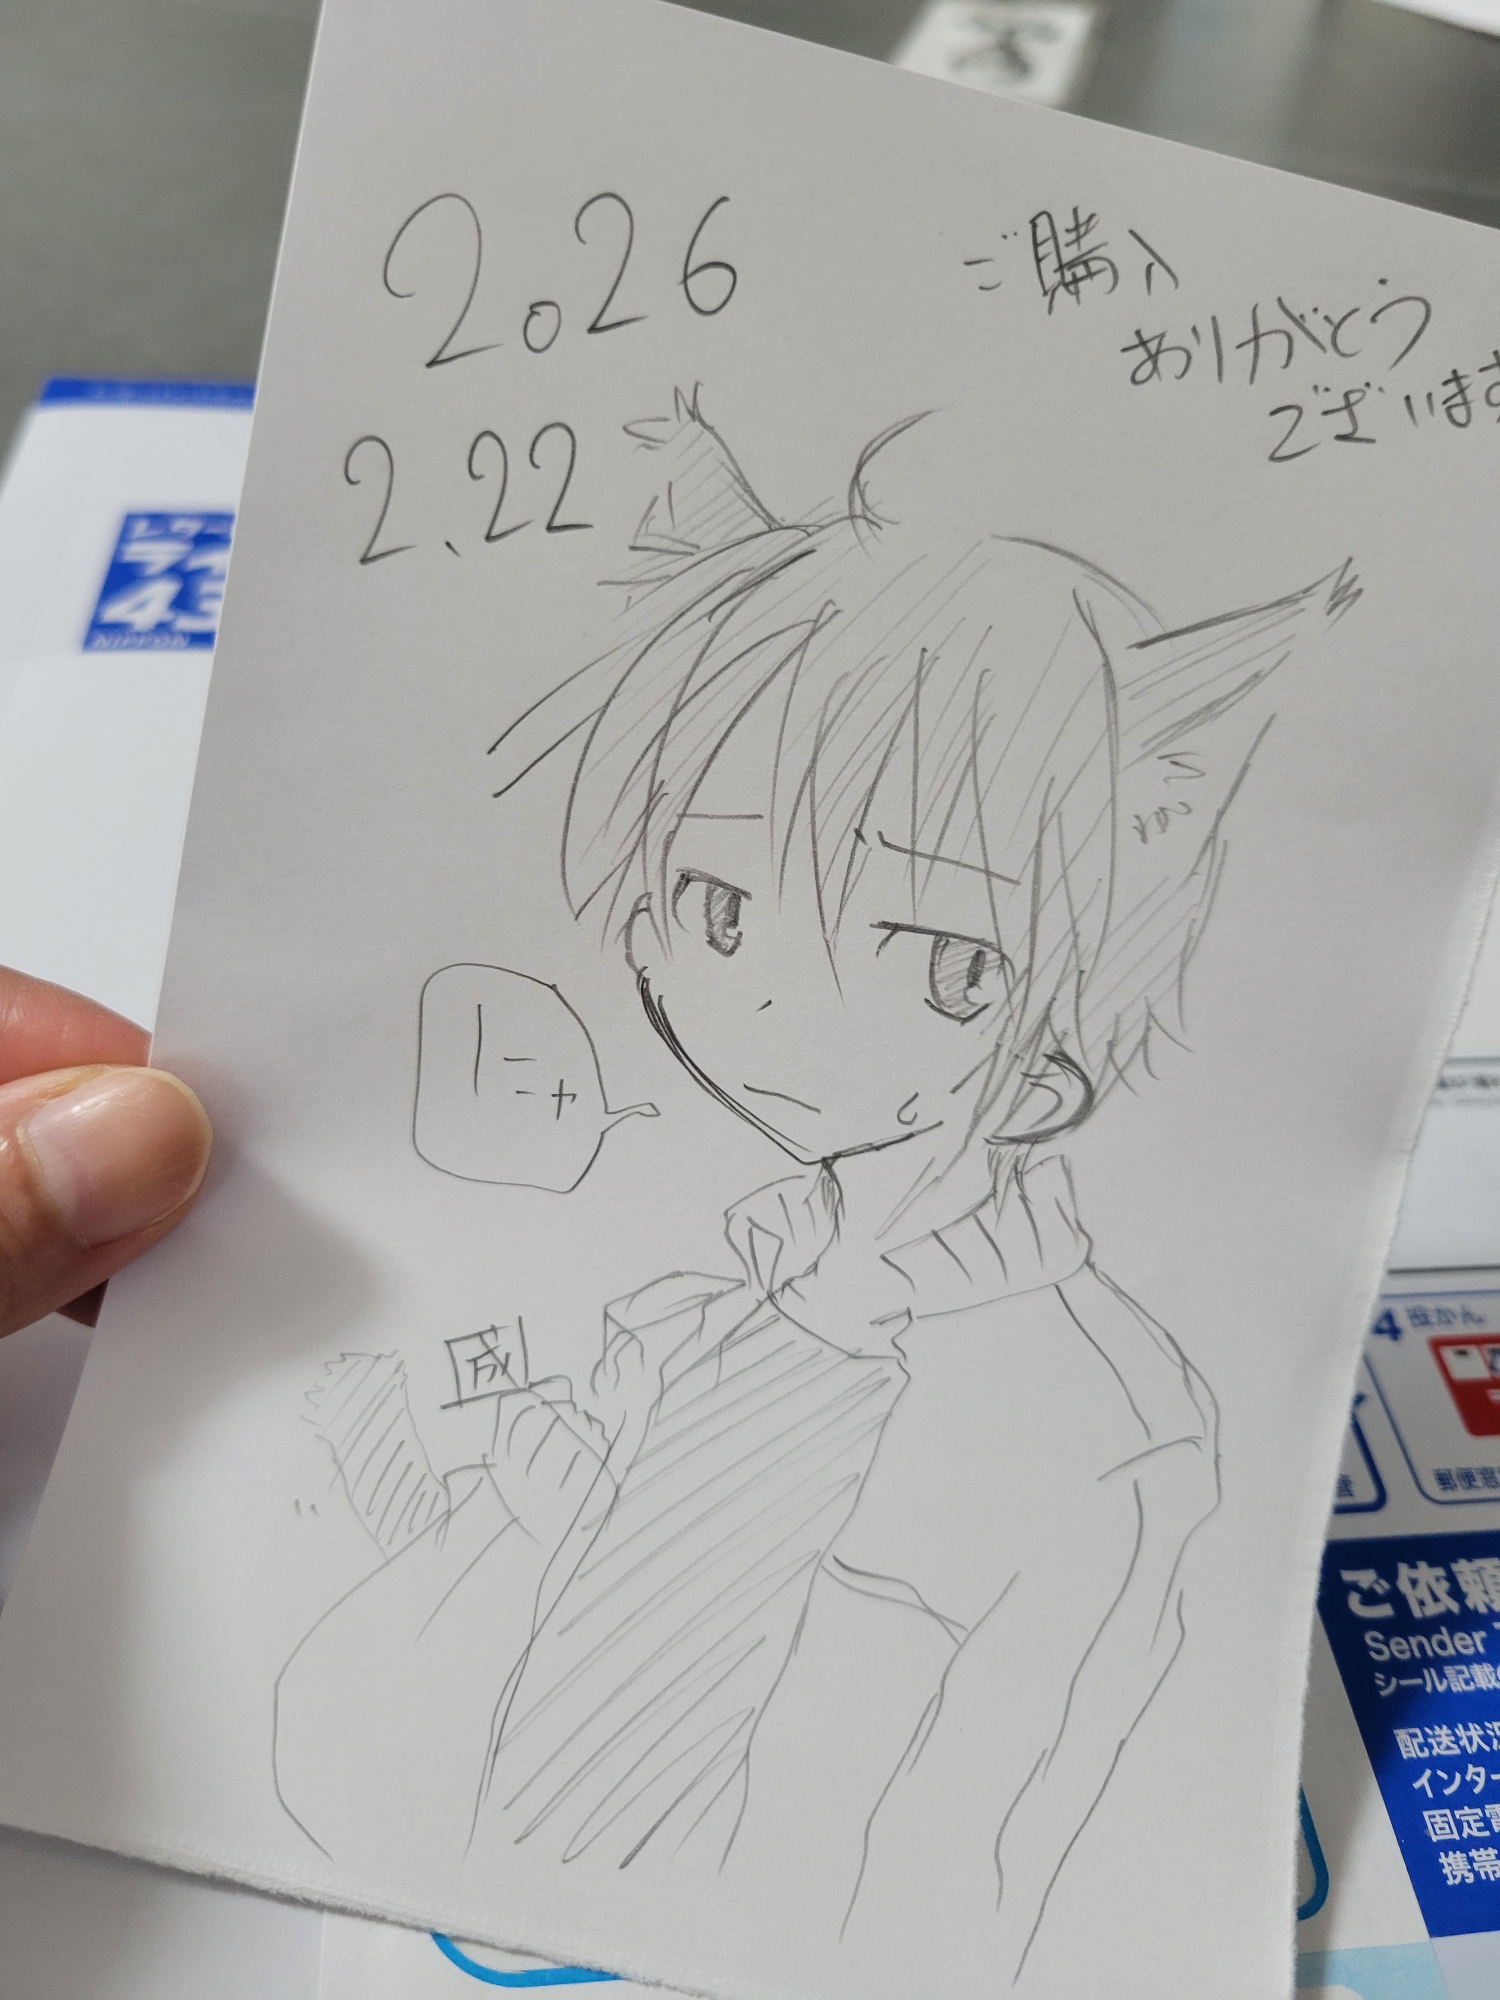 2026
2.22
ご購入
ありがとう
ございます
にゃー
成
レター
ライ
43
NIPPON
4
郵便窓
ご依頼
Sender
シール記載
配送状況
インター
固定電
携帯